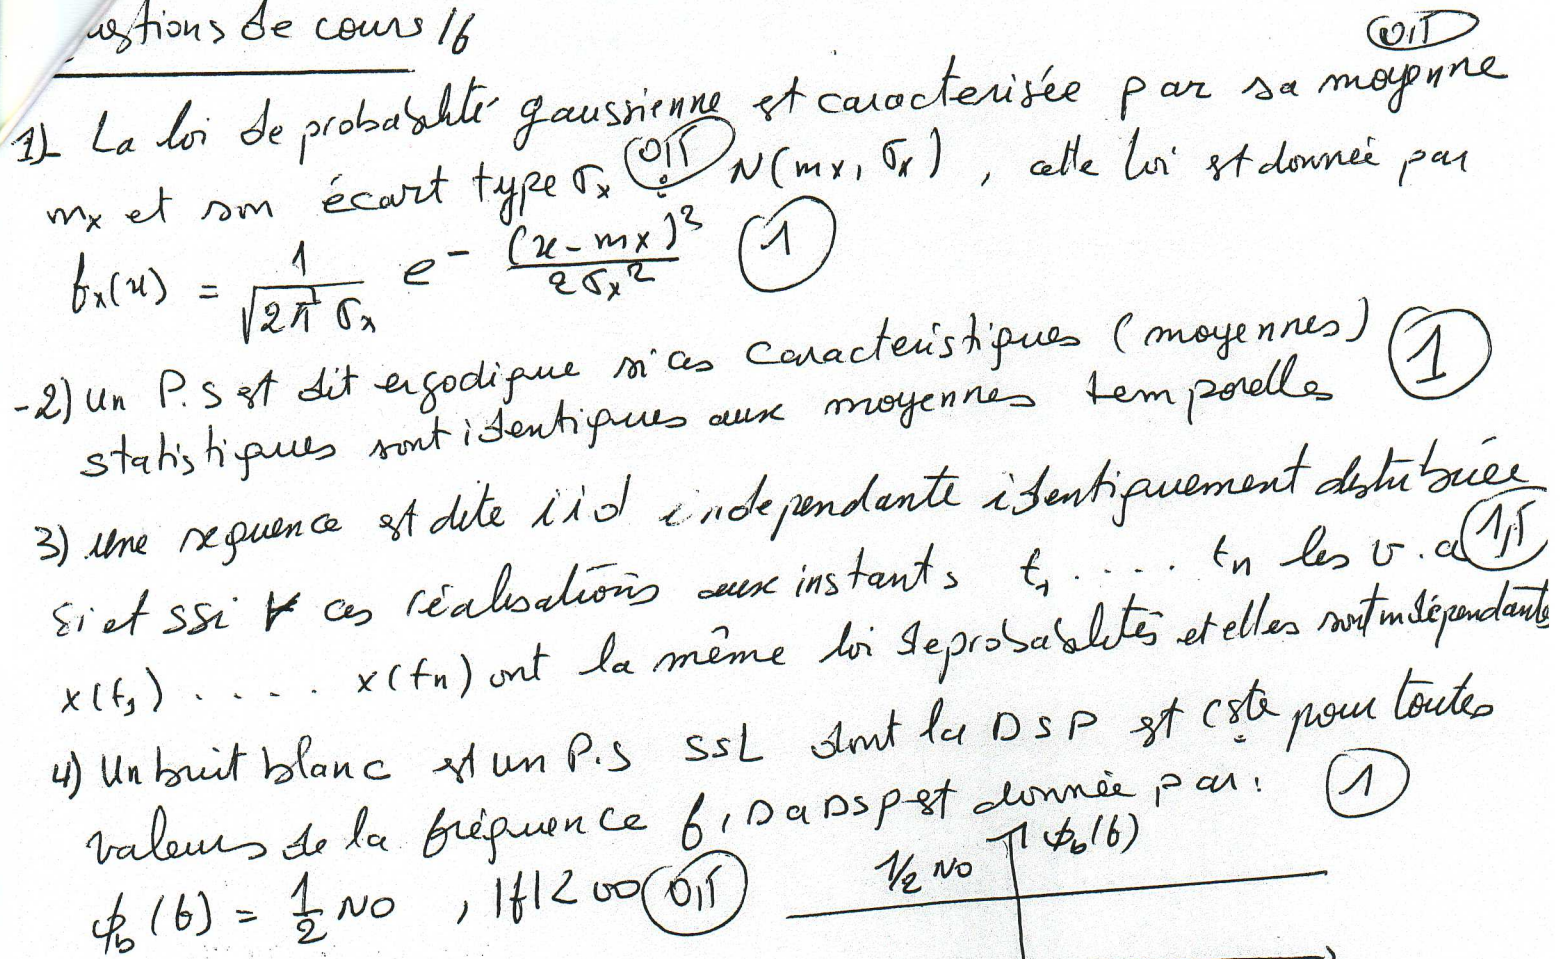 uestions de cours /6
0,5
1)_ La loi de probabilité gaussienne est caracterisée par sa moyenne
mx et son écart type σx 0,5 : N(mx, σx) , cette loi est donnée par
fx(x) = 1/(√2π σx) e^-(x-mx)²/(2σx²) 1
-2) Un P.S est dit ergodique si ces caracteristiques (moyennes) 1
statistiques sont identiques aux moyennes temporelles
3) Une sequence est dite iid independante identiquement distribuée
si et ssi ∀ ces réalisations aux instants t1 ..... tn les v.a 1,5
x(t1) ..... x(tn) ont la même loi de probabilités et elles sont indépendantes
4) Un bruit blanc est un P.S SSL dont la DSP est cste pour toutes
valeurs de la fréquence f, sa DSP est donnée par: 1
ϕb(f) = 1/2 No , |f|<∞ 0,5
1/2 No ϕb(f)